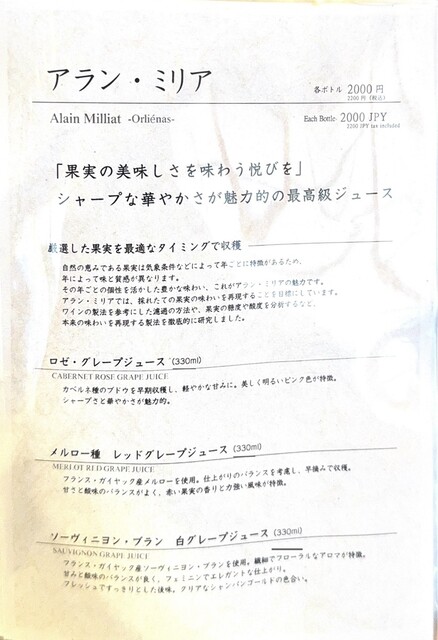 アラン・ミリア
各ボトル 2000 円
2200 円（税込）
Alain Milliat -Orliénas-
Each Bottle- 2000 JPY
2200 JPY tax included
「果実の美味しさを味わう悦びを」
シャープな華やかさが魅力的の最高級ジュース
厳選した果実を最適なタイミングで収穫
自然の恵みである果実は気象条件などによって年ごとに特徴があるため、
年によって味と質感が異なります。
その年ごとの個性を活かした豊かな味わい、これがアラン・ミリアの魅力です。
アラン・ミリアでは、採れたての果実の味わいを再現することを目標にしています。
ワインの製法を参考にした濾過の方法や、果実の糖度や酸度を分析するなど、
本来の味わいを再現する製法を徹底的に研究しました。
ロゼ・グレープジュース (330ml)
CABERNET ROSE GRAPE JUICE
カベルネ種のブドウを早期収穫し、軽やかな甘みに。美しく明るいピンク色が特徴。
シャープさと華やかさが魅力的。
メルロー種 レッドグレープジュース (330ml)
MERLOT RED GRAPE JUICE
フランス・ガイヤック産メルローを使用。仕上がりのバランスを考慮し、早摘みで収穫。
甘さと酸味のバランスがよく、赤い果実の香りと力強い風味が特徴。
ソーヴィニヨン・ブラン 白グレープジュース (330ml)
SAUVIGNON GRAPE JUICE
フランス・ガイヤック産ソーヴィニヨン・ブランを使用。繊細でフローラルなアロマが特徴。
甘みと酸味のバランスが良く、フェミニンでエレガントな仕上がり。
フレッシュですっきりとした後味。クリアなシャンパンゴールドの色合い。